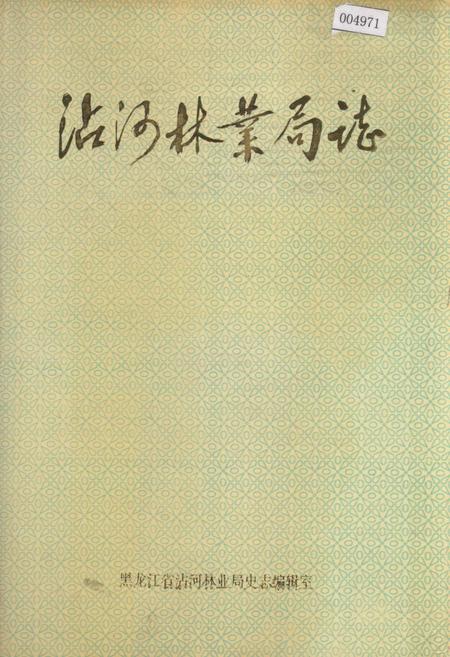 004971
沾河林業局誌
黑龙江省沾河林业局史志编辑室